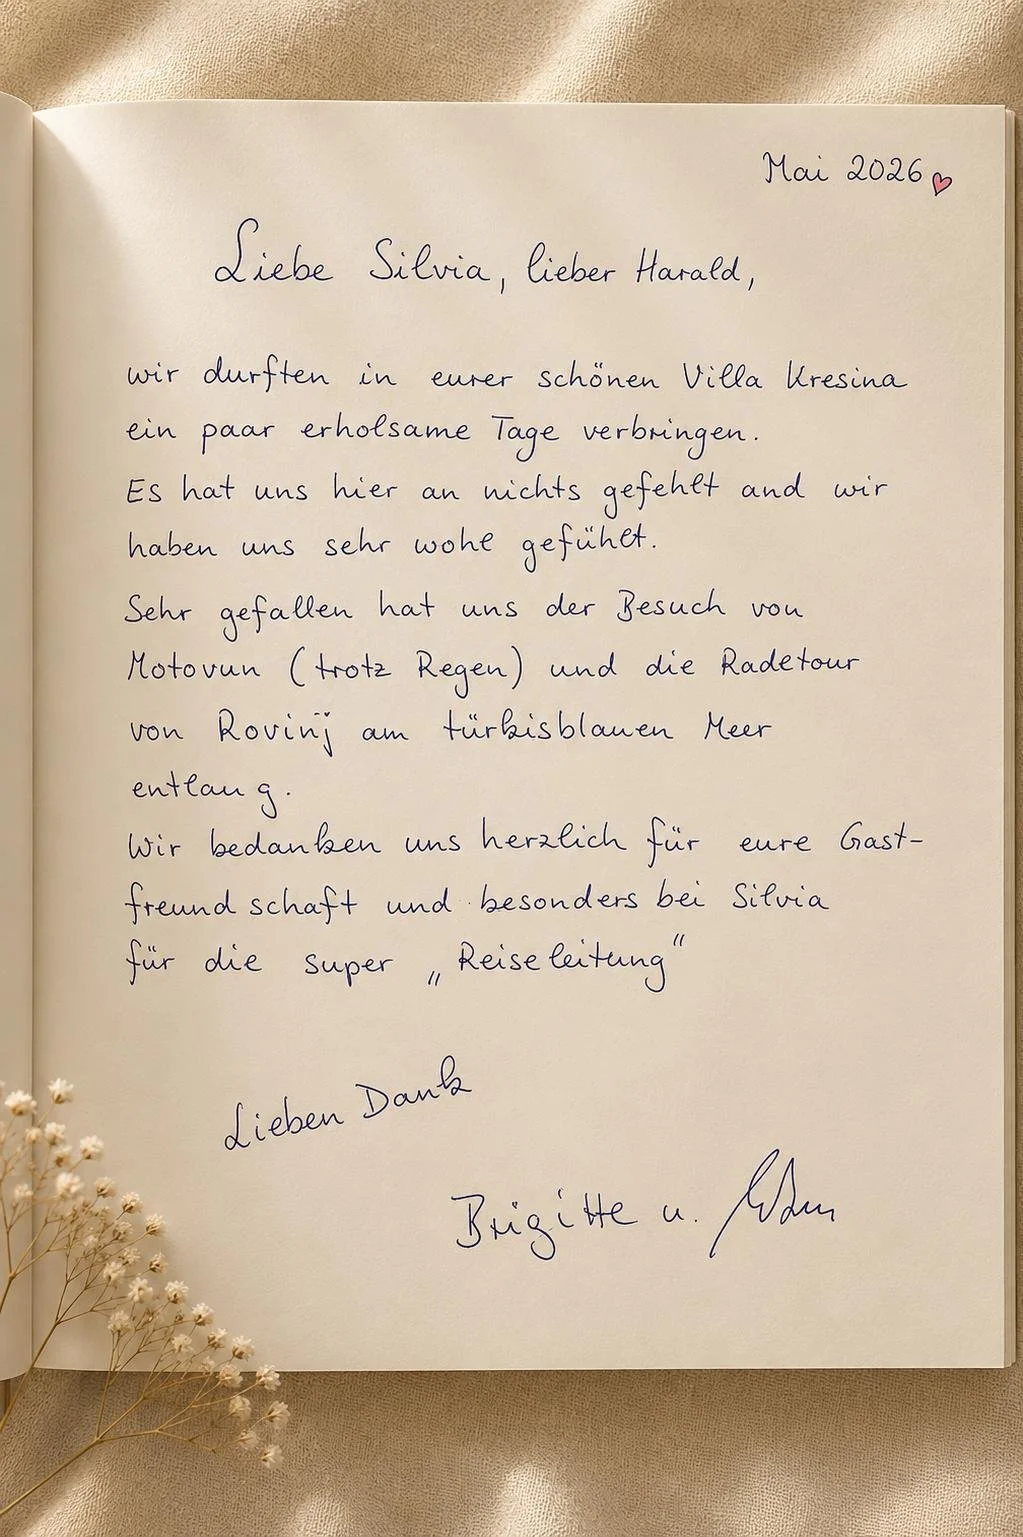 Mai 2026
Liebe Silvia, lieber Harald,
wir durften in eurer schönen Villa Kresina
ein paar erholsame Tage verbringen.
Es hat uns hier an nichts gefehlt and wir
haben uns sehr wohl gefühlt.
Sehr gefallen hat uns der Besuch von
Motovun (trotz Regen) und die Radetour
von Rovinj am türkisblauen Meer
entlang.
Wir bedanken uns herzlich für eure Gast-
freundschaft und besonders bei Silvia
für die super „Reiseleitung"
Lieben Dank
Brigitte u.